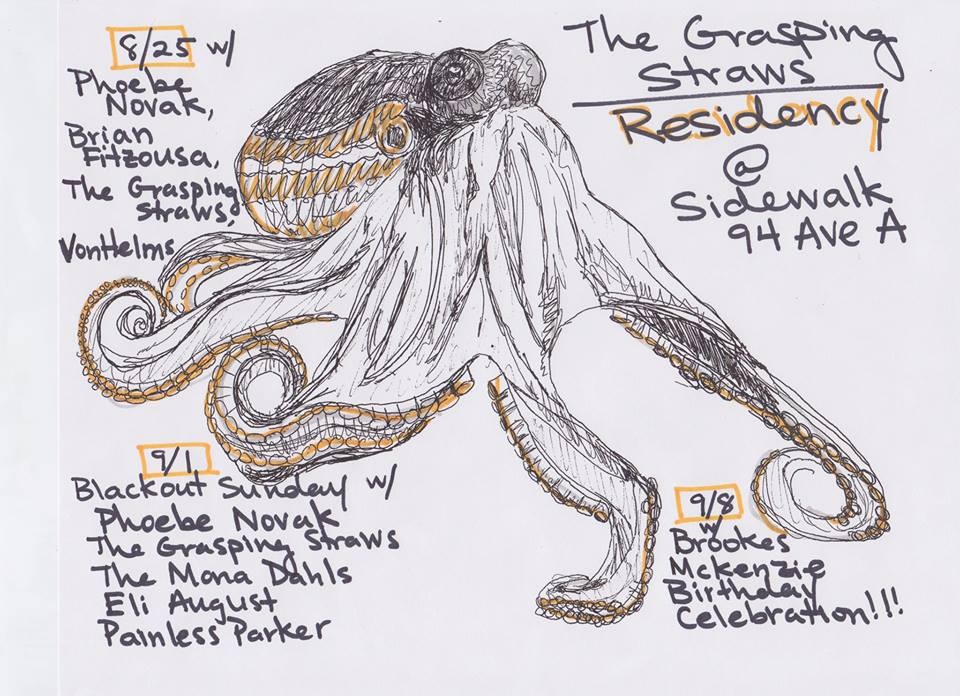 The Grasping
Straws
Residency
@
Sidewalk
94 Ave A
8/25 w/
Phoebe
Novak,
Brian
Fitzousa,
The Grasping
Straws,
VonHelms
9/1
Blackout Sunday w/
Phoebe Novak
The Grasping Straws
The Mona Dahls
Eli August
Painless Parker
9/8
w/
Brookes
Mckenzie
Birthday
Celebration!!!